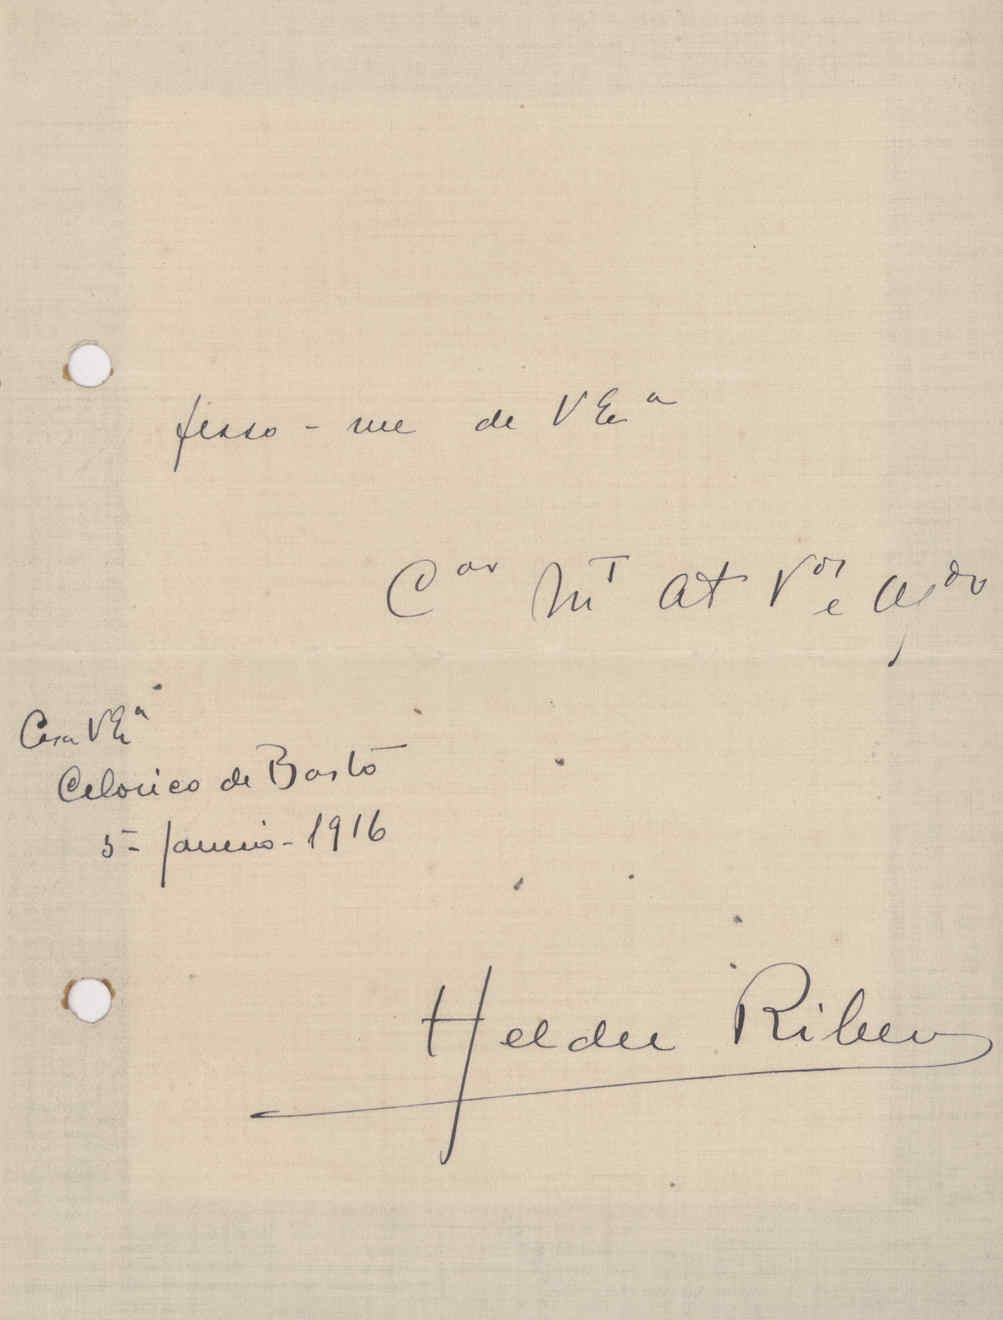 fesso-me de V Exª
Cor Mt At Vor e Agdo
Casa V Exª
Celorico de Basto
5 - Janeiro - 1916
Helder Ribeiro